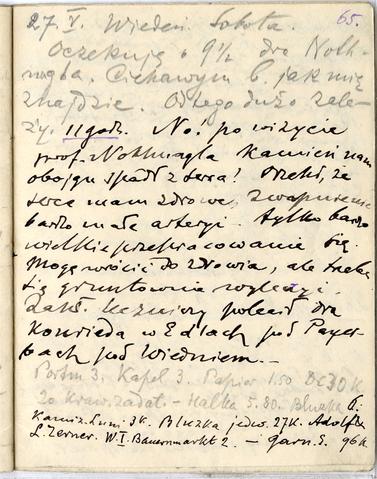 65.
27. V. Wiedeń. Sobota.
Oczekuję o 9½ dra Noth-
nagla. Ciekawym b. jak mię
znajdzie. Od tego dużo zale-
ży. 11 godz. No! po wizycie
prof. Nothnagla kamień nam
obojgu spadł z serca! Orzekł, że
serce mam zdrowe, zwapnienie
bardzo małe arteryi. tylko bardzo
wielkie przepracowanie się.
Mogę wrócić do zdrowia, ale trzeba
się gruntownie wyleczyć.
Zakł. leczniczy polecił dra
Konrieda w Edlach pod Payer-
bach pod Wiedniem. —
Portm 3. Kapel 3. Papier 1.50
20 kraw. zadat. — Halka 5.80. Bluzka
Kamiz. Lum. 3K. Bluzka jedw. 27K. Adolf
L. Zerner. W. I. Bauernmarkt 2. — Garn. S. 96K